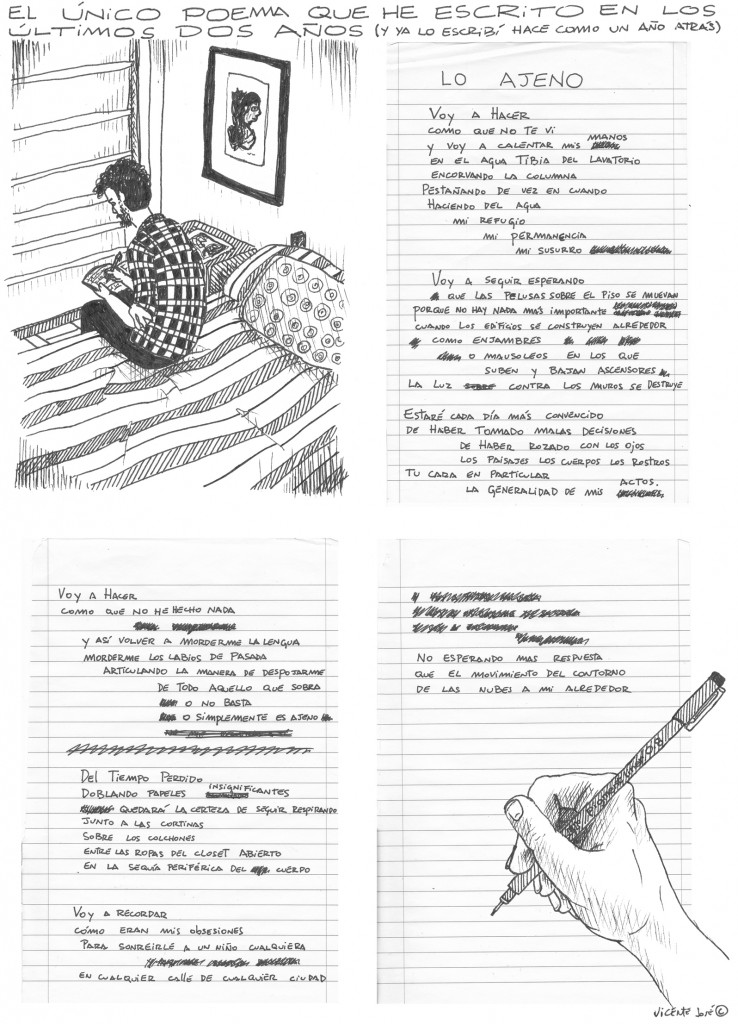 EL ÚNICO POEMA QUE HE ESCRITO EN LOS
ÚLTIMOS DOS AÑOS (Y YA LO ESCRIBÍ HACE COMO UN AÑO ATRÁS)
LO AJENO
VOY A HACER
COMO QUE NO TE VI
Y VOY A CALENTAR MIS MANOS
EN EL AGUA TIBIA DEL LAVATORIO
ENCORVANDO LA COLUMNA
PESTAÑANDO DE VEZ EN CUANDO
HACIENDO DEL AGUA
MI REFUGIO
MI PERMANENCIA
MI SUSURRO
VOY A SEGUIR ESPERANDO
QUE LAS PELUSAS SOBRE EL PISO SE MUEVAN
PORQUE NO HAY NADA MÁS IMPORTANTE
CUANDO LOS EDIFICIOS SE CONSTRUYEN ALREDEDOR
COMO ENJAMBRES
O MAUSOLEOS EN LOS QUE
SUBEN Y BAJAN ASCENSORES
LA LUZ CONTRA LOS MUROS SE DESTRUYE
ESTARÉ CADA DÍA MÁS CONVENCIDO
DE HABER TOMADO MALAS DECISIONES
DE HABER ROZADO CON LOS OJOS
LOS PAISAJES LOS CUERPOS LOS ROSTROS
TU CARA EN PARTICULAR
LA GENERALIDAD DE MIS ACTOS.
VOY A HACER
COMO QUE NO HE HECHO NADA
Y ASÍ VOLVER A MORDERME LA LENGUA
MORDERME LOS LABIOS DE PASADA
ARTICULANDO LA MANERA DE DESPOJARME
DE TODO AQUELLO QUE SOBRA
O NO BASTA
O SIMPLEMENTE ES AJENO
DEL TIEMPO PERDIDO
DOBLANDO PAPELES INSIGNIFICANTES
QUEDARÁ LA CERTEZA DE SEGUIR RESPIRANDO
JUNTO A LAS CORTINAS
SOBRE LOS COLCHONES
ENTRE LAS ROPAS DEL CLOSET ABIERTO
EN LA SEQUÍA PERIFÉRICA DEL CUERPO
VOY A RECORDAR
CÓMO ERAN MIS OBSESIONES
PARA SONREÍRLE A UN NIÑO CUALQUIERA
EN CUALQUIER CALLE DE CUALQUIER CIUDAD
NO ESPERANDO MAS RESPUESTA
QUE EL MOVIMIENTO DEL CONTORNO
DE LAS NUBES A MI ALREDEDOR
VICENTE JOSÉ ©